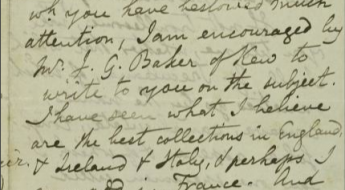 wh you have bestowed much
attention, I am encouraged by
Mr. J. G. Baker of Kew to
write to you on the subject.
I have seen what I believe
are the best collections in England,
& Ireland & Italy, & perhaps I
in France. And